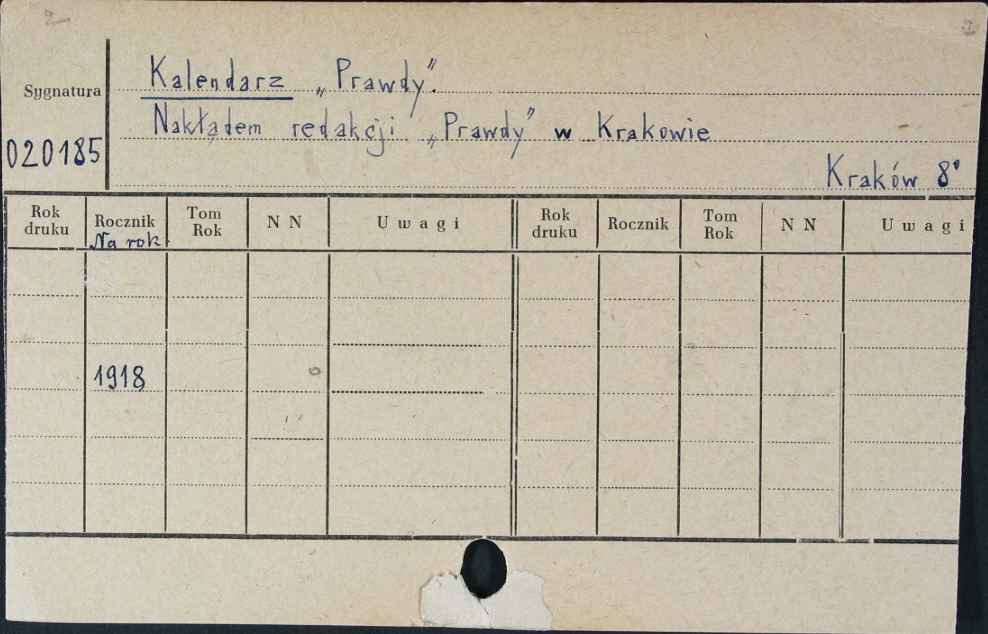 2
Sygnatura
Kalendarz „Prawdy".
Nakładem redakcji „Prawdy" w Krakowie
020185
Kraków 8°
Rok druku Rocznik Tom Rok N N Uwagi Rok druku Rocznik Tom Rok N N Uwagi
Na rok
1918